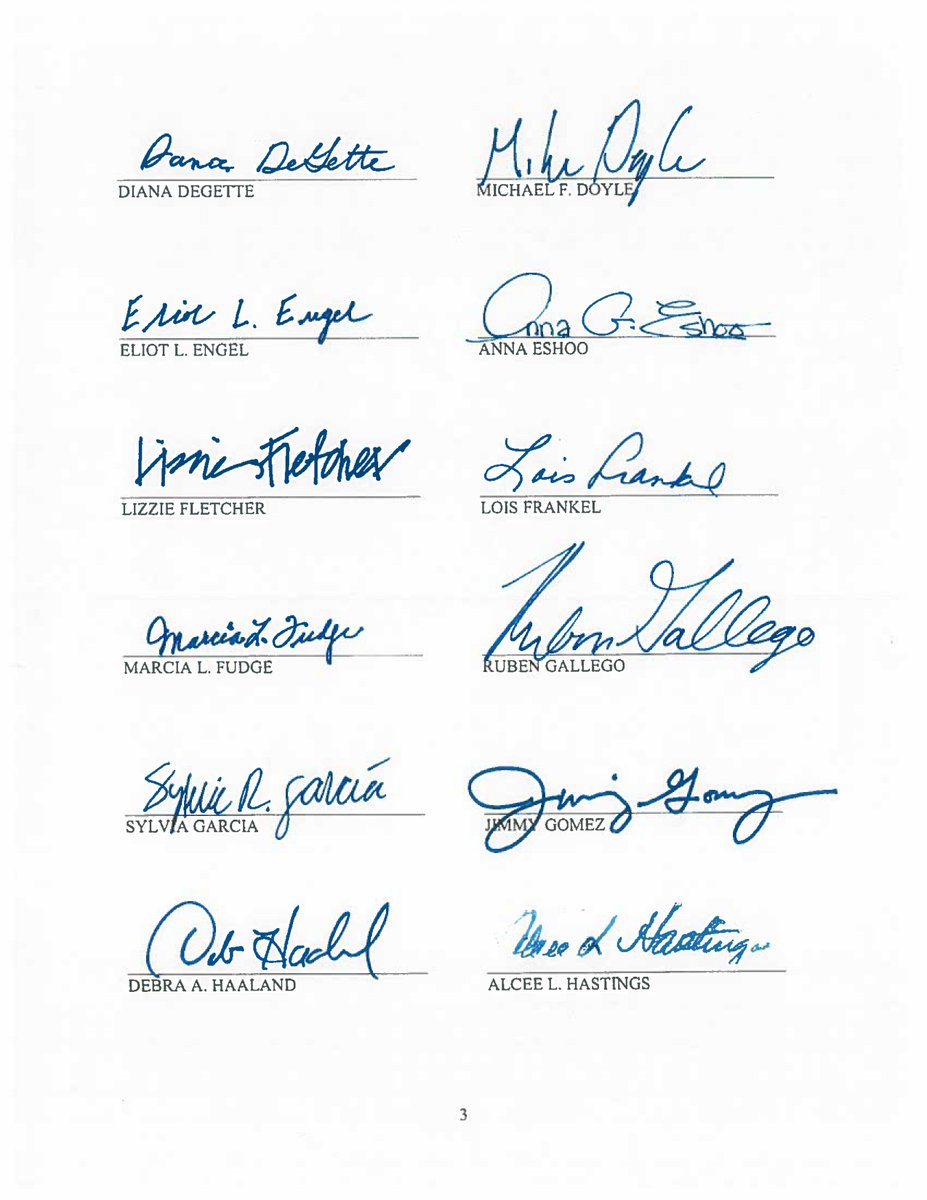 Diana DeGette Mike Doyle
DIANA DEGETTE MICHAEL F. DOYLE
Eliot L. Engel Anna G. Eshoo
ELIOT L. ENGEL ANNA ESHOO
Lizzie Fletcher Lois Frankel
LIZZIE FLETCHER LOIS FRANKEL
Marcia L. Fudge Ruben Gallego
MARCIA L. FUDGE RUBEN GALLEGO
Sylvia R. García Jimmy Gomez
SYLVIA GARCIA JIMMY GOMEZ
Deb Haaland Alcee L Hastings
DEBRA A. HAALAND ALCEE L. HASTINGS
3